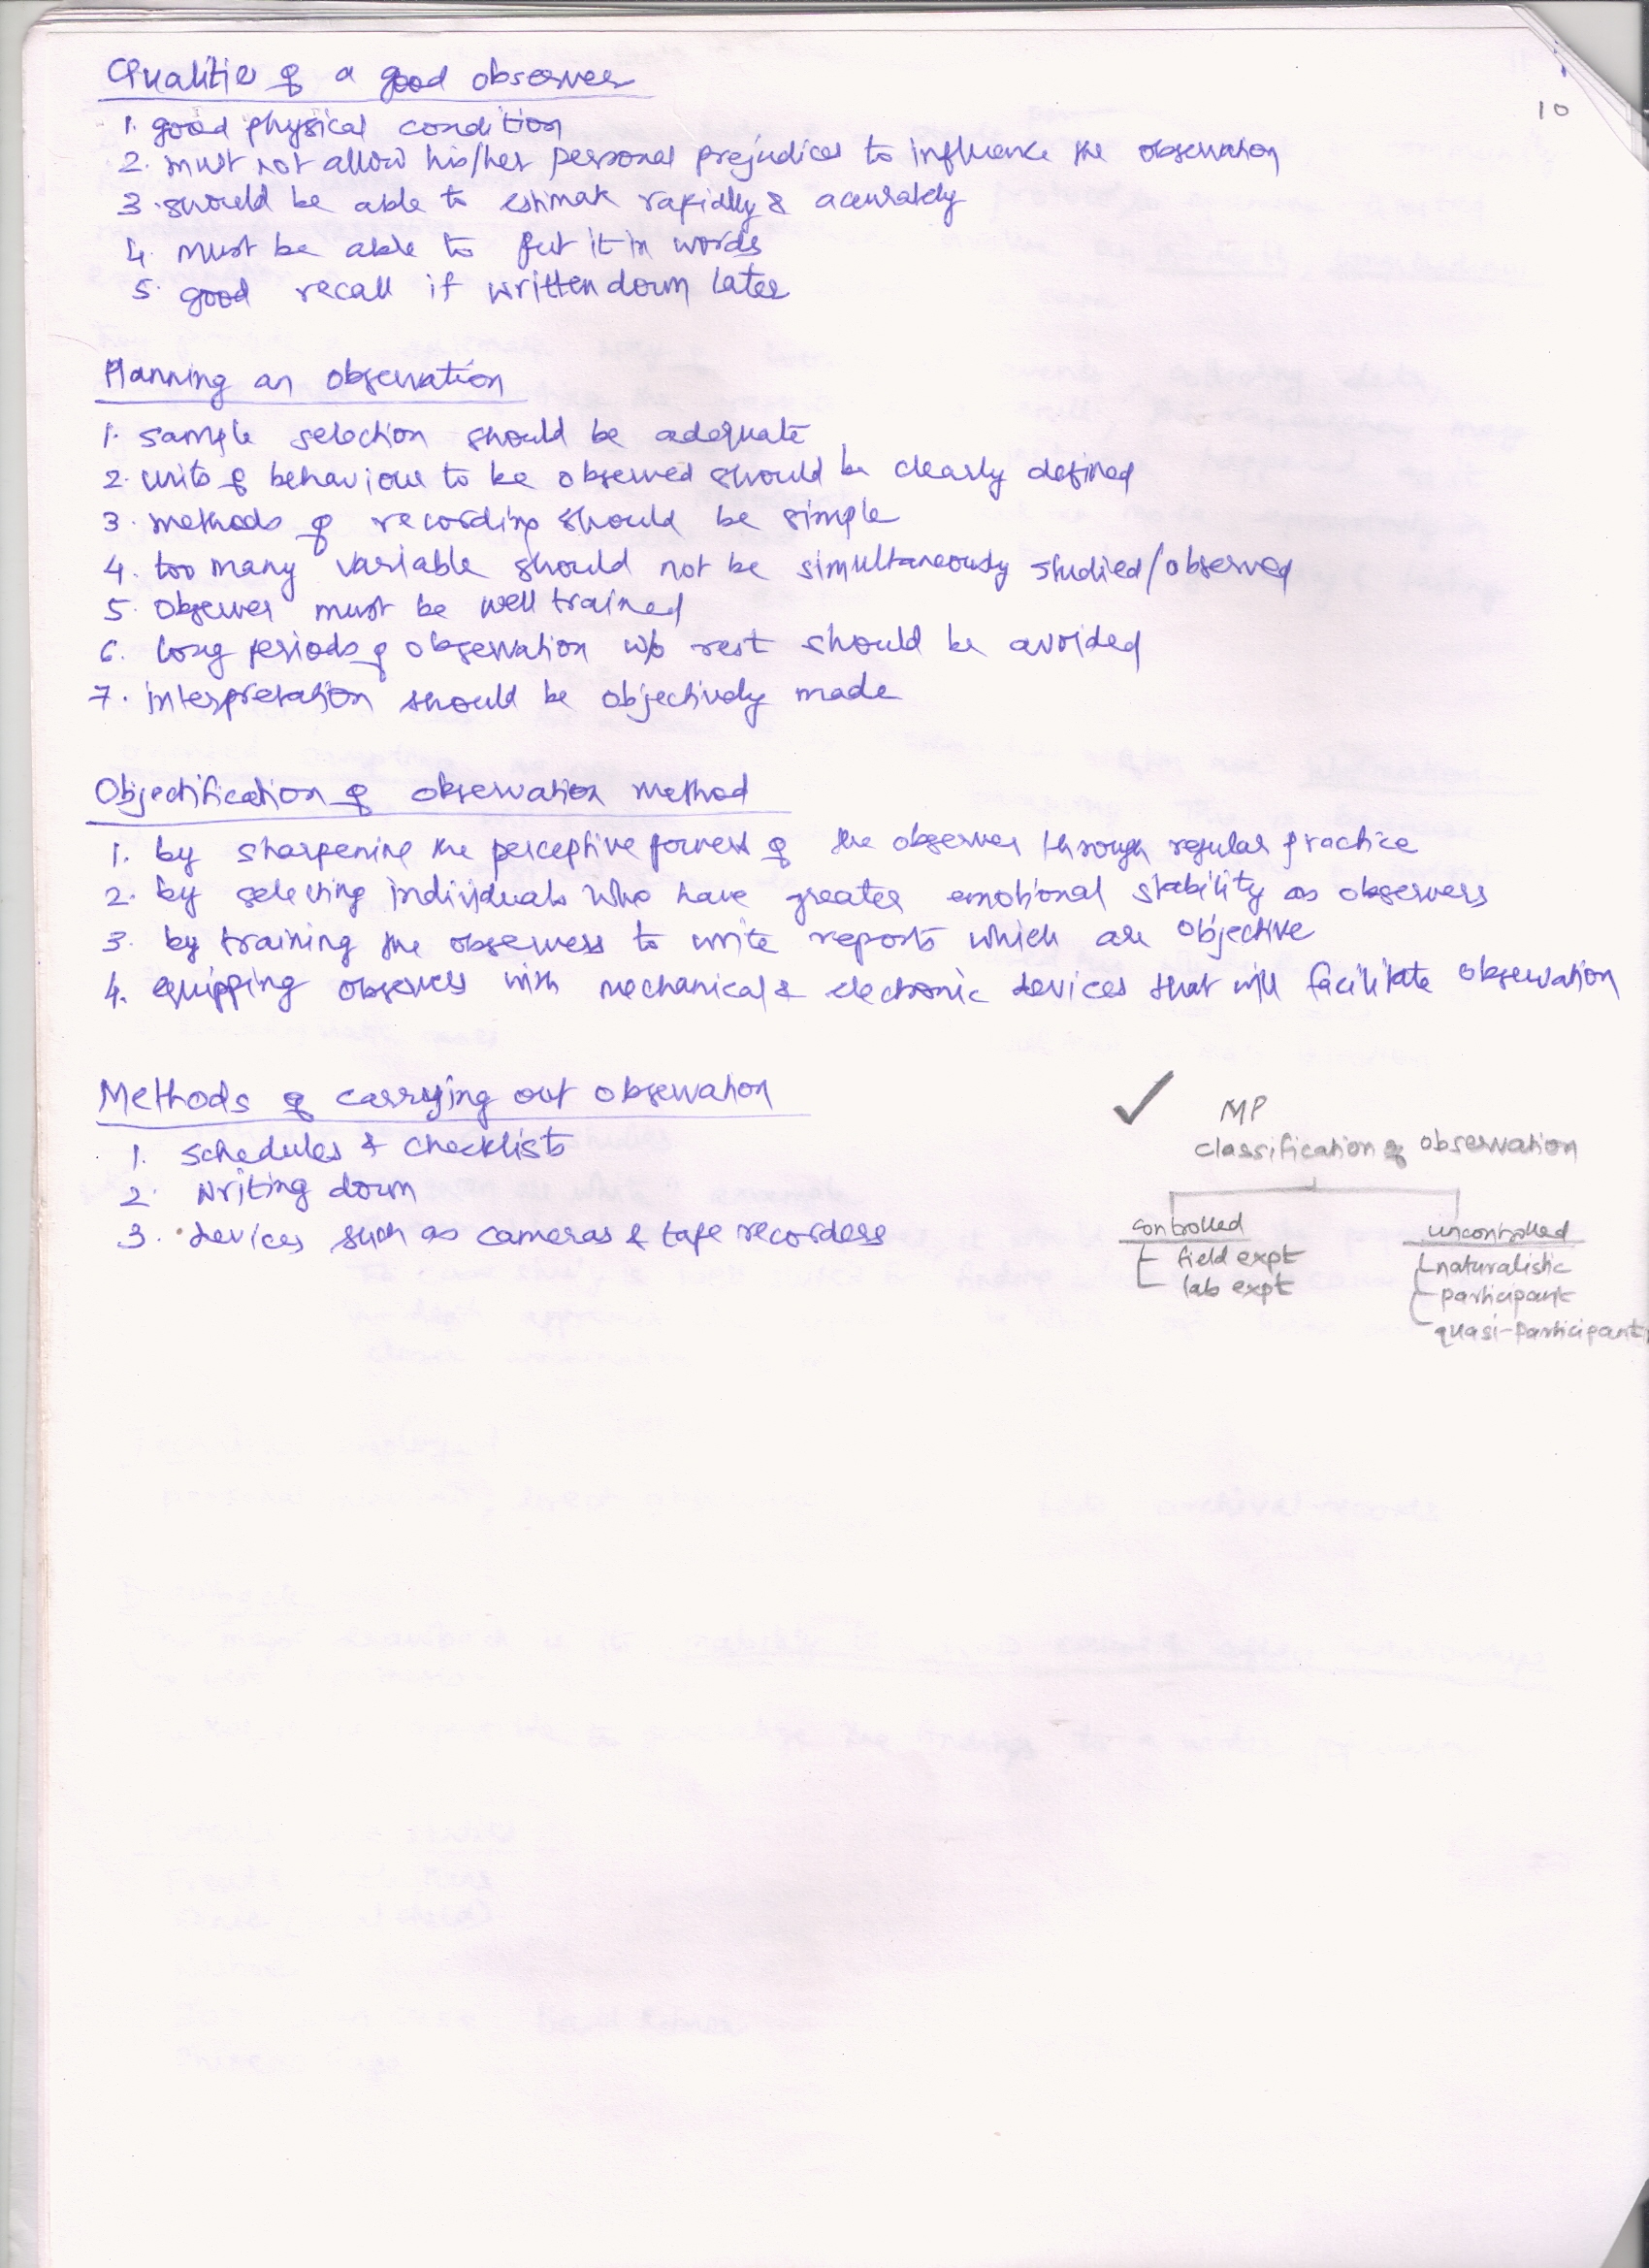 10
Qualities of a good observer
1. good physical condition
2. must not allow his/her personal prejudices to influence the observation
3. should be able to estimate rapidly & accurately
4. must be able to put it in words
5. good recall if written down later
Planning an observation
1. sample selection should be adequate
2. units of behaviour to be observed should be clearly defined
3. methods of recording should be simple
4. too many variable should not be simultaneously studied/observed
5. Observer must be well trained
6. long periods of observation w/o rest should be avoided
7. interpretation should be objectively made
Objectification of observation method
1. by sharpening the perceptive powers of the observer through regular practice
2. by selecting individuals who have greater emotional stability as observers
3. by training the observers to write reports which are objective
4. equipping observers with mechanical & electronic devices that will facilitate observation
Methods of carrying out observation
1. schedules & checklists
2. writing down
3. devices such as cameras & tape recorders
✓ MP
classification of observation
controlled
field expt
lab expt
uncontrolled
naturalistic
participant
quasi-participant